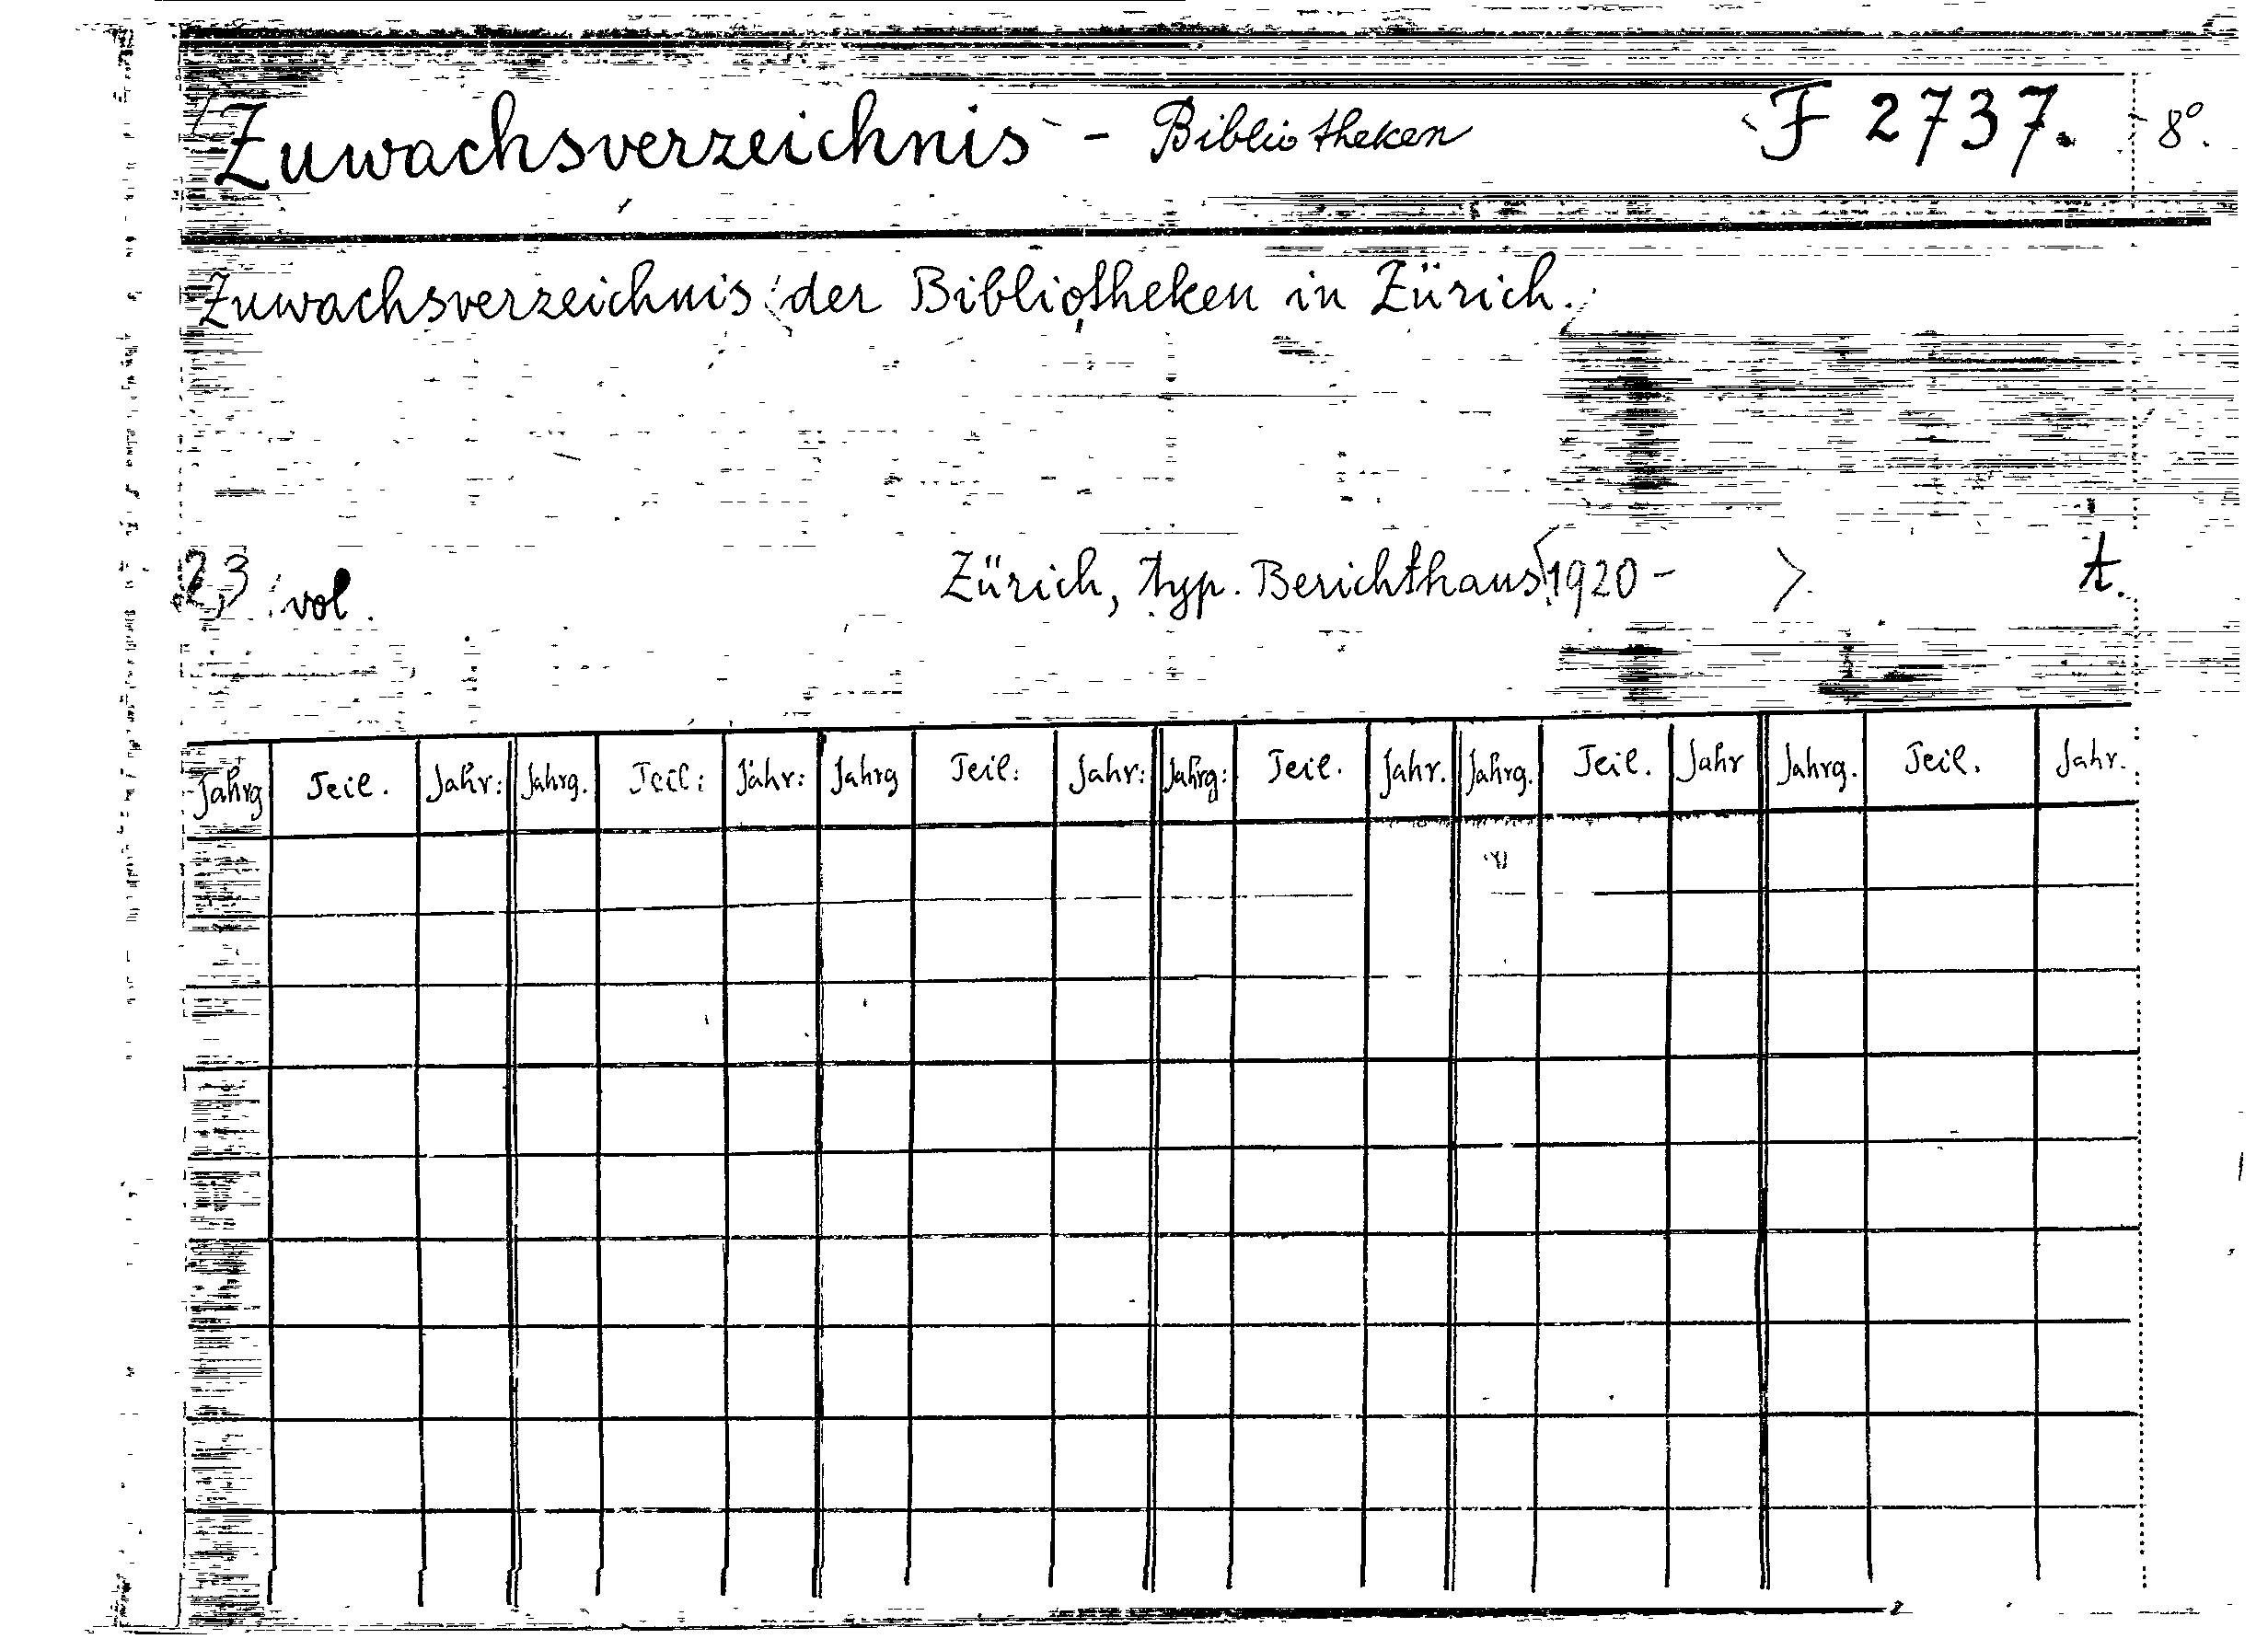 Zuwachsverzeichnis - Bibliotheken F 2737. 8°.
Zuwachsverzeichnis der Bibliotheken in Zürich.
23 vol. Zürich, typ. Berichthaus 1920 - >. t.
Jahrg Teil. Jahr: Jahrg. Teil: Jahr: Jahrg Teil: Jahr: Jahrg: Teil. Jahr. Jahrg. Teil. Jahr Jahrg. Teil. Jahr.